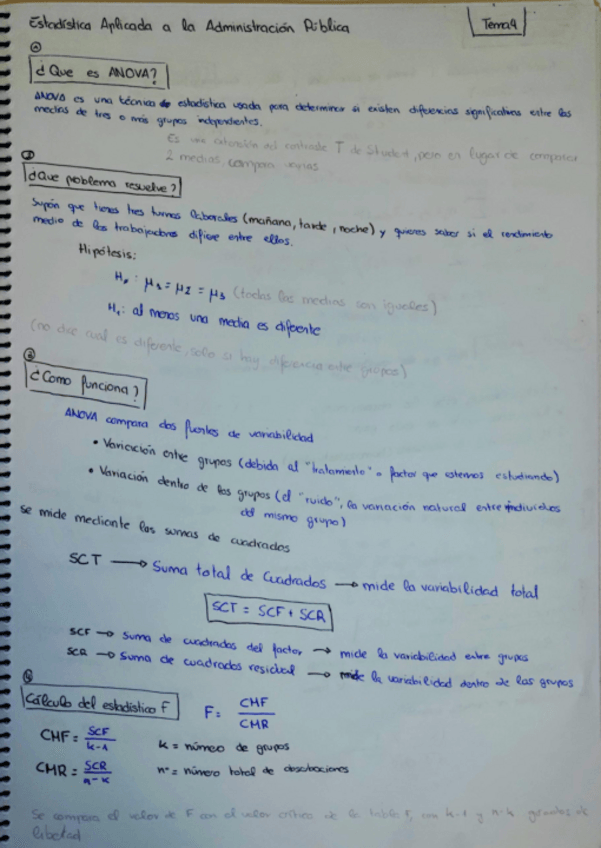 Estadística Aplicada a la Administración Pública
Tema 4
¿Que es ANOVA?
ANOVA es una técnica de estadística usada para determinar si existen diferencias significativas entre las
medias de tres o más grupos independientes.
Es una extensión del contraste T de Student, pero en lugar de comparar
2 medias compara varias
¿Que problema resuelve?
Supón que tienes tres turnos laborales (mañana, tarde, noche) y quieres saber si el rendimiento
medio de los trabajadores difiere entre ellos.
Hipótesis:
H₀: μ₁ = μ2 = μ3 (todas las medias son iguales)
H₁: al menos una media es diferente
(no dice cual es diferente, solo si hay diferencia entre grupos)
¿Como funciona?
ANOVA compara dos fuentes de variabilidad
• Variación entre grupos (debida al "tratamiento" o factor que estemos estudiando)
• Variación dentro de los grupos (el "ruido", la variación natural entre individuos
del mismo grupo)
Se mide mediante las sumas de cuadrados
SCT → Suma total de Cuadrados → mide la variabilidad total
SCT = SCF + SCR
SCF → Suma de cuadrados del factor → mide la variabilidad entre grupos
SCR → Suma de cuadrados residual → mide la variabilidad dentro de los grupos
Cálculo del estadístico F
F = CMF / CMR
CMF = SCF / k-1
k = número de grupos
CMR = SCR / n-k
n = número total de observaciones
Se compara el valor de F con el valor crítico de la tabla F, con k-1 y n-k grados de
libertad